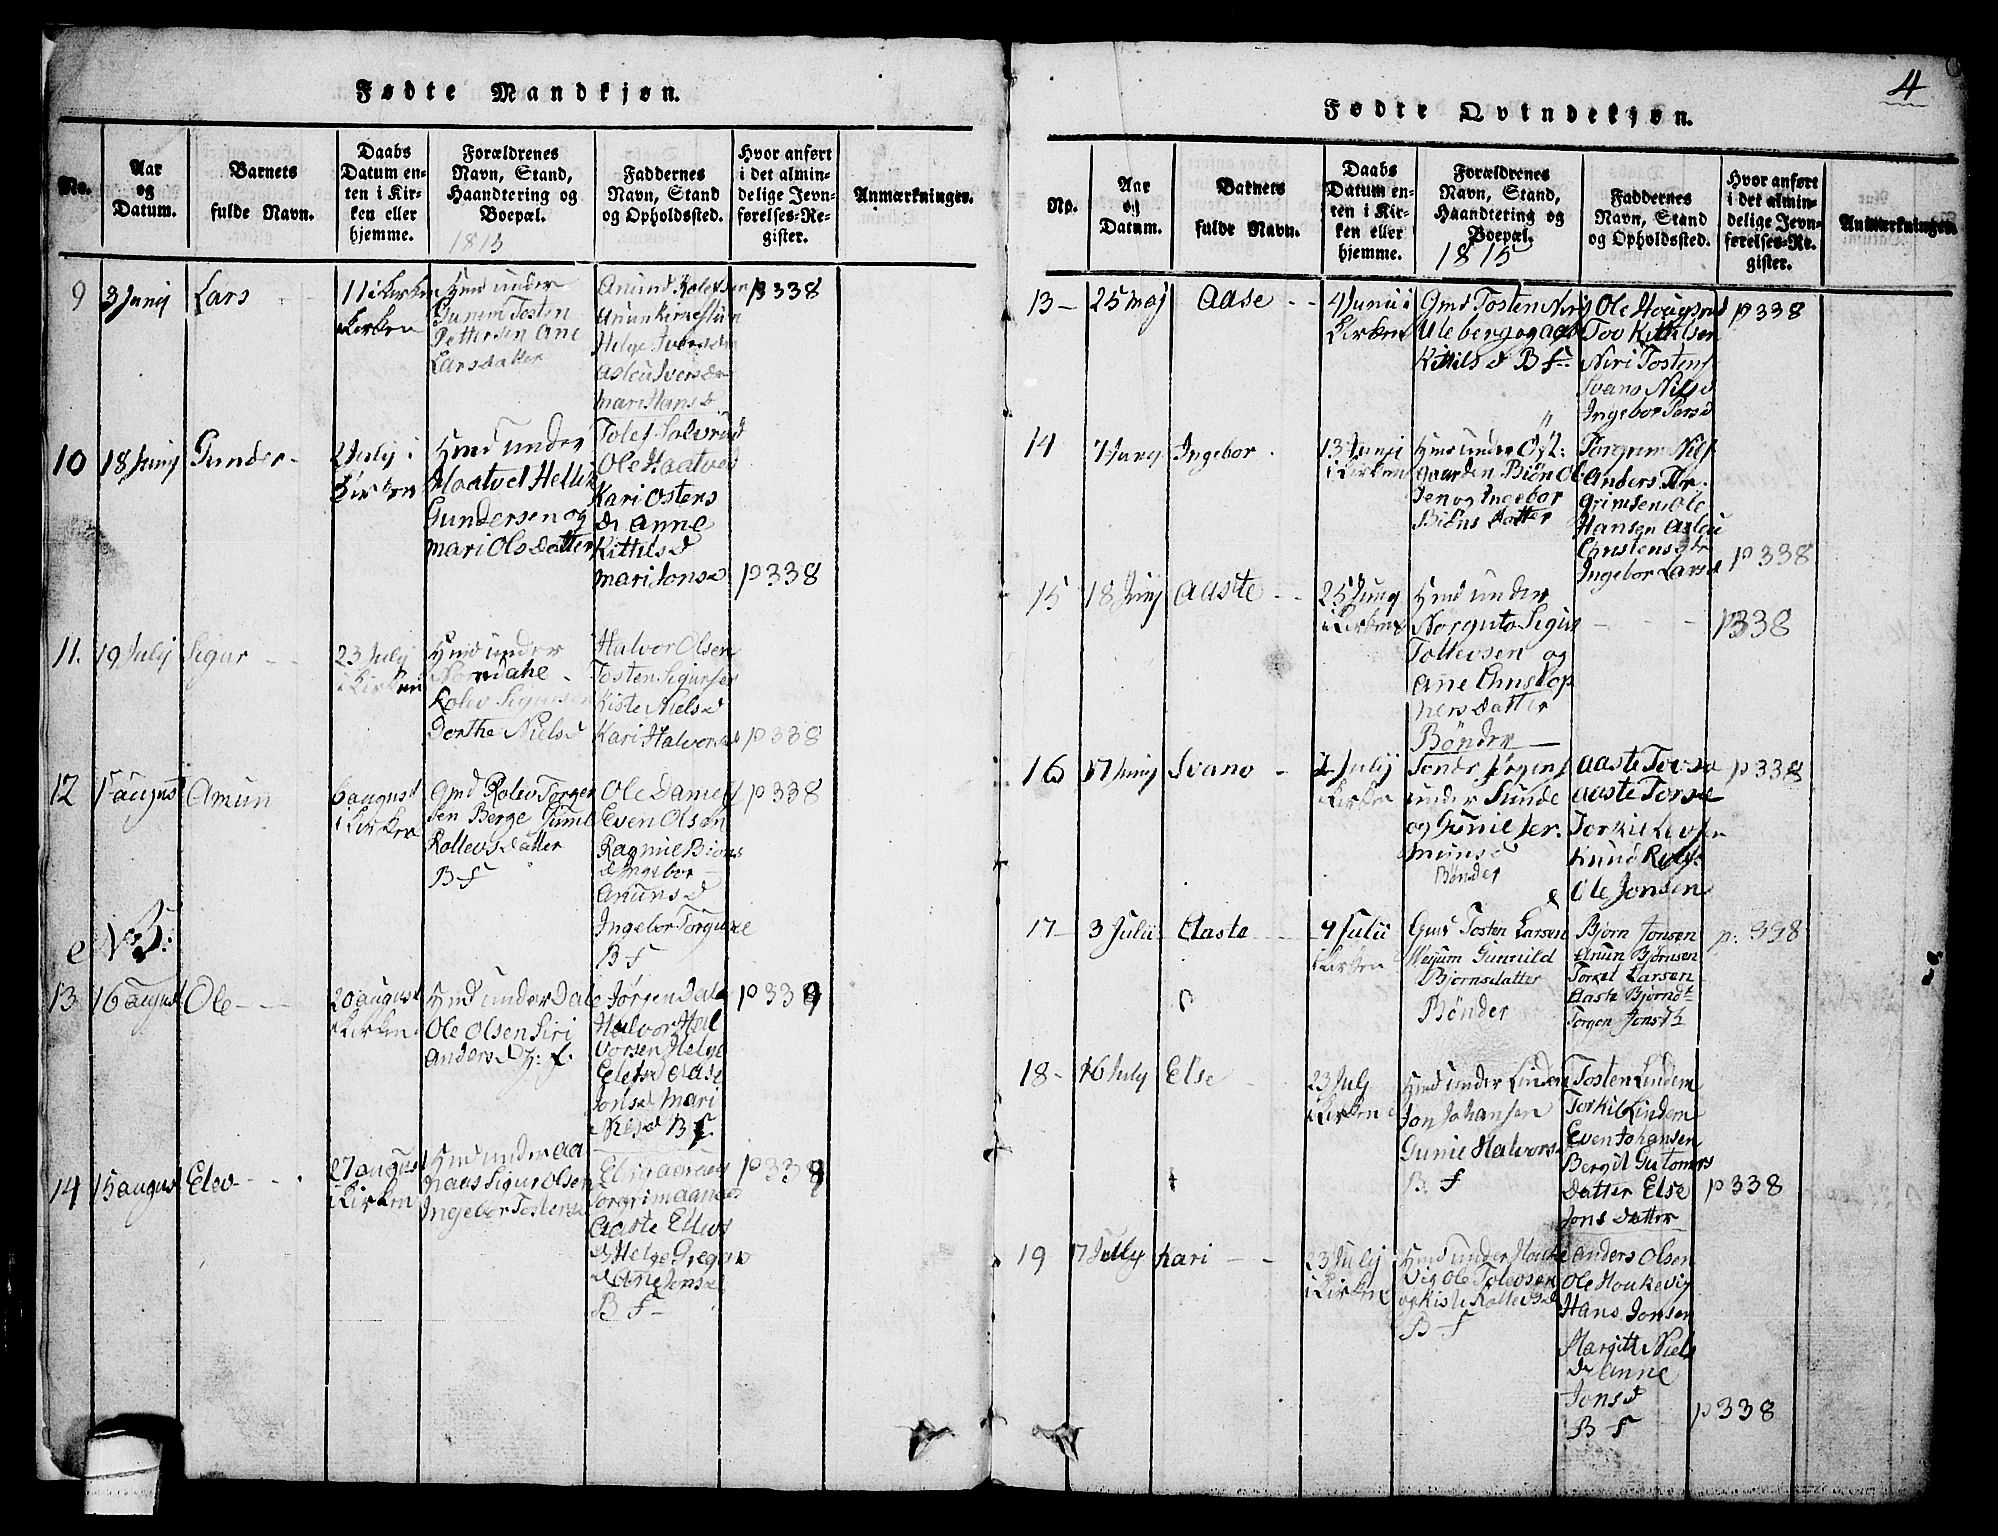 4
Fødte Mandkjøn.
No.
Aar
og
Datum.
Barnets
fulde Navn.
Daabs
Datum en-
ten i Kir-
ken eller
hjemme.
Forældrenes
Navn, Stand,
Haandtering og
Boepæl.
1815
Faddernes
Navn, Stand
og Opholdssted.
Hvor anført
i det almin-
delige Jevn-
førelses-Re-
gister.
Anmærkninger.
9
3 Junij
Lars
11 i Kirken
i Kirken
Hmd under
Gunim Tosten
Pettersen Ane
Larsdatter
Helge Ivers
Mari Hans d
p 338
10
18 Junij
Gunder
2 July i
Kirken
Hmd under
Haatvet Hellik
Gundersen og
Mari Olsdatter
Tolef Solvrud
Ole Haatvet
Kari Ostens
dr Anne
Kittels d
Mari Jons d
p 338
11.
19 Julij
Sigur
23 Julij
i Kirken
Hmd under
Norndahe
Rolev Sigursen
Dorthe Niels d
Halvor Olsen
Tosten Sigurser
Kiste Niels d
Kari Halvorsd
p 338
12
15 august
Amun
6 august
i Kirken
Gmd Rolev Torger
sen Berge Gunil
Rollevsdatter
B f
Ole Damen
Even Olsen
Ragnile Biøns
d Ingebor
Amuns d
Ingebor Torguns
B f
p 338
No 5:
13
16 august
Ole
20 august
i Kirken
Hmd under Dal
Ole Olsen Siri
Anders d H: L.
Jørgen Dale
Halvor Hal
vorsen Helge
Elefsd Aase
Jonsd Mari
Nils d B f
p 338
14
15 august
Elev
27 august
i Kirken
Hmd under Aa
haas Sigur Olsen
Ingebor Tostens d
Torgrim Aanes
Aaste Ellevs
d Helge Gregar
d Ane Jens d
B f
p 338
Fødte Qvindekjøn.
No.
Aar
og
Datum.
Barnets
fulde Navn.
Daabs
Datum en-
ten i Kir-
ken eller
hjemme.
Forældrenes
Navn, Stand,
Haandtering og
Boepæl.
1815
Faddernes
Navn, Stand
og Opholdssted.
Hvor anført
i det almin-
delige Jevn-
førelses-Re-
gister.
Anmærkninger.
13
25 Maj
Aase
4 Junii i
Kirken
Gmd Tosten
Uleberg og Aase
Kittils d B f
Ole Hougsrud
Tov Kittilsen
Niri Tostens
Svano Nils d
Ingebor Pers d
p 338
14
7 Junij
Ingebor
13 Junij
i Kirken
Hmd under
gaarden Biøn Ol
sen og Ingebor
Biøns datter
Torgrim Nils
Anders Tor
Grimsen Ole
Hansen Aslau
Christens dr
Ingebor Lars d
p 338
15
18 Junij
Aaste
25 Junij
i Kirken
Hmd under
Norguto Sigur
Tollevsen og
Ane Christop
hersdatter
Bønder
p 338
16
17 Junij
Svano
2 Julij
i Kirken
Sonde Jørgens
under Sunde
og Gunil Jer
muns d
Bønder
Aaste Tovs d
Aaste Tors d
Torkil Levsen
Knud Rolfs
Ole Jonsen
p 338
17
3 Julii
Aaste
9 Julii
i Kirken
Gmd Tosten Larsen
Meijum Gunuild
Bjornsdatter
Bønder
Bjørn Jonsen
Amun Bjørnsen
Torkel Larsen
Aaste Bjørndt
Torgon Jonsdt
p. 338
18
16 July
Else
23 July
i Kirken
Hmd under Lindem
Jon Johansen
Gunie Halvors
B. f
Tosten Lindem
Torkil Lindem
Even Johansen
Bergit Gutorms
datter Else
Jons datter
p 338
19
17 July
Kari
23 Julij
i Kirken
Hmd under Houke
vig Ole Tolevsen
og Kiste Rollevs d
B f
Anders Olsen
Ole Houkevig
Hans Jonsen
Margitt Niels
dr Anne
Jons d
B f
p 338